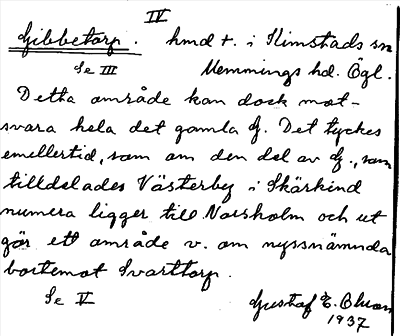 IV
Gibbetorp. hmd t. i Kimstads sn
Se III Memmings hd. Ögl.
Detta område kan dock mot-
svara hela det gamla G. Det tyckes
emellertid, som om den del av G., som
tilldelades Västerby i Skärkind
numera ligger till Norsholm och ut
gör ett område v. om nyssnämnda
bortemot Svarttorp.
Se V Gustaf E.
1937